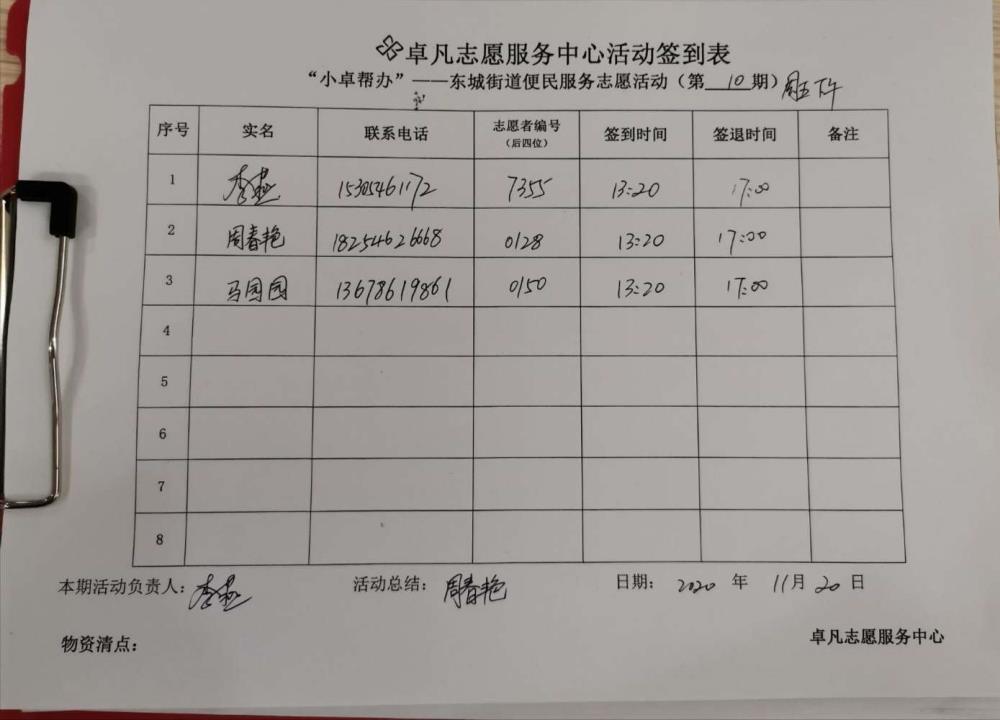 卓凡志愿服务中心活动签到表
“小卓帮办”——东城街道便民服务志愿活动（第 10 期）周五下午
序号 实名 联系电话 志愿者编号（后四位） 签到时间 签退时间 备注
1 李燕 15305461172 7355 13:20 17:00
2 周春艳 18254626668 0128 13:20 17:00
3 马园园 13678619861 0150 13:20 17:00
4
5
6
7
8
本期活动负责人：李燕 活动总结：周春艳 日期：2020 年 11月 20 日
物资清点：
卓凡志愿服务中心